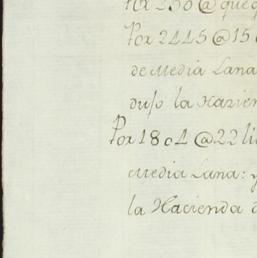 Por 230 @ que
Por 2445 @ 15
de Media Lana
dujo la Hazien
Por 1804 @ 22 li
Media Lana: y
la Hacienda d